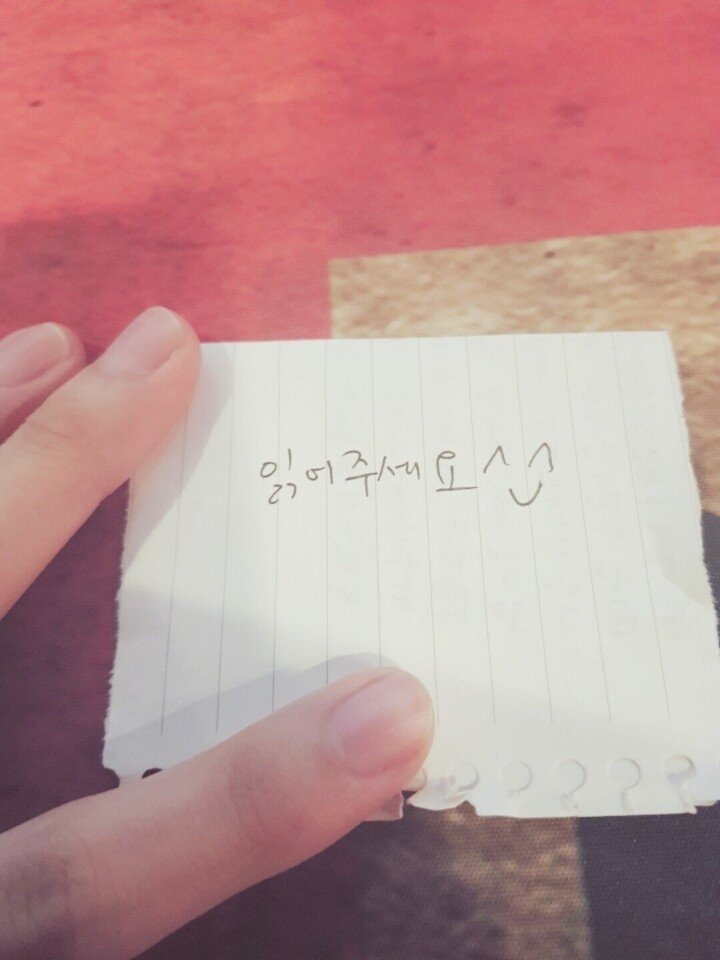 읽어주세요^^